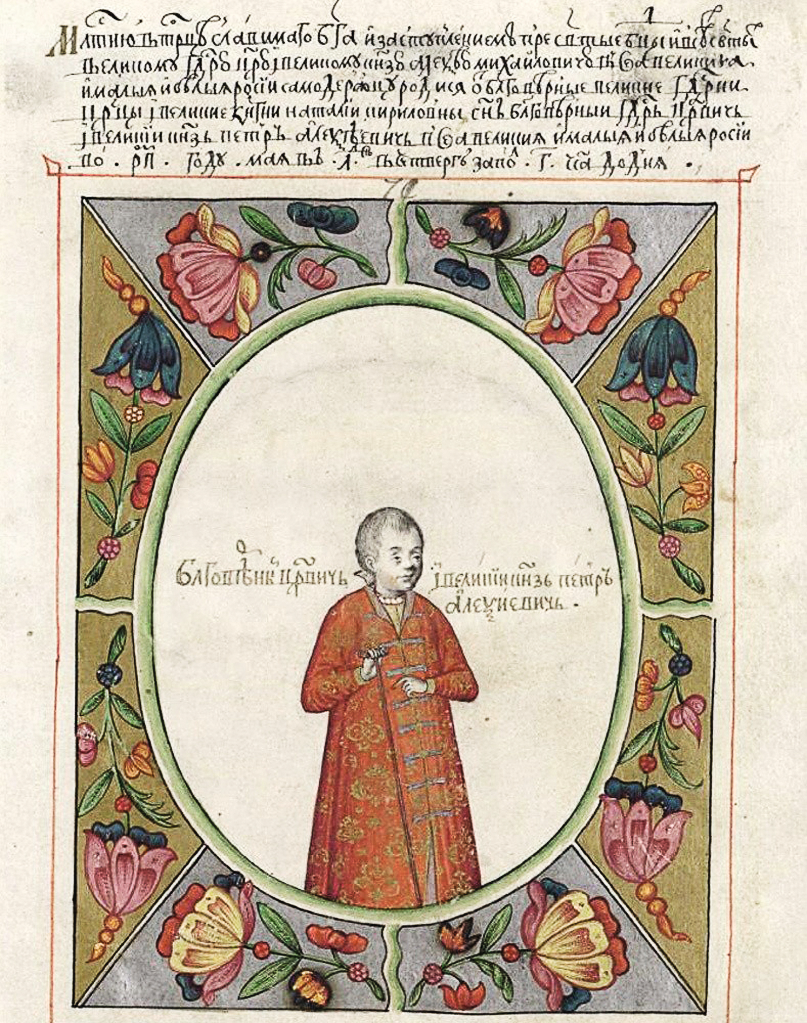 Млстию в трцѣ славимаго бга и заступлениемъ пресвтые бцы и всѣхъ свтыхъ
великому гдрю црю і великому кнзю алеѯѣю михаиловичю всеа великия
и малыя и белыя росии самодержцу родися ѿ блговѣрные великие гдрни
црцы і великие кнгни наталии кириловны снъ блговѣрныи гдрь црвичь
і великии кнзь петръ алеѯѣевичь всеа великия и малыя и белыя росии
во . рп . году . мая въ . л . въ четвергъ за пол . г . часа до дня .
блговѣрныи црвичь і великии кнзь петръ
алеѯиевичь .